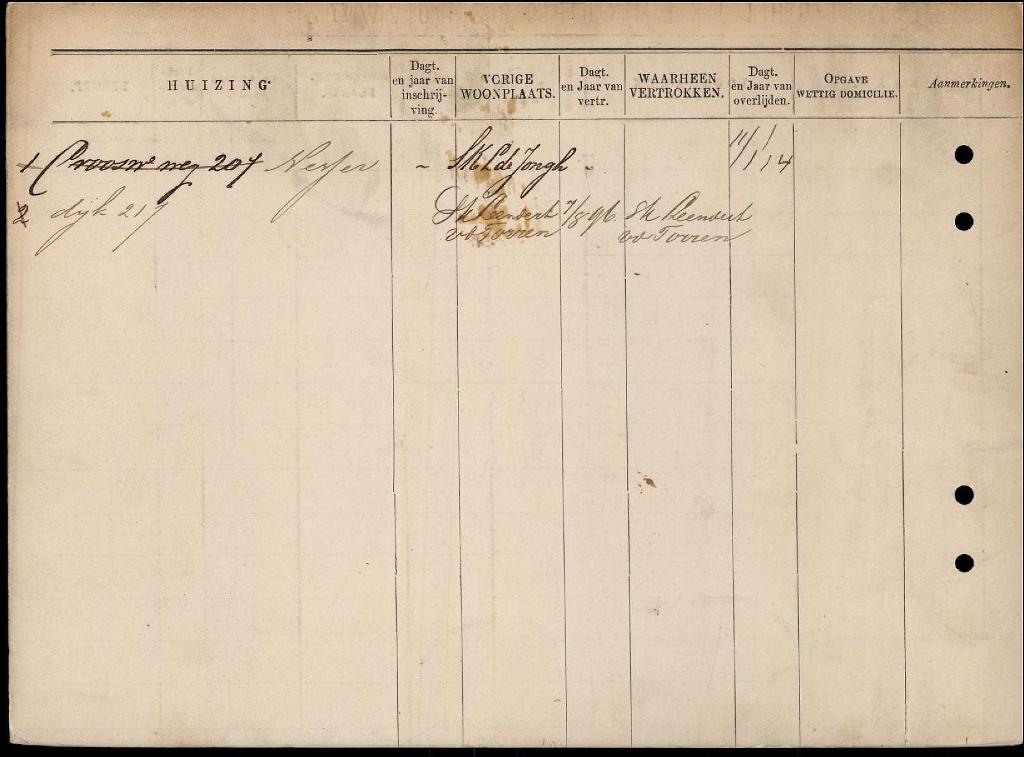 HUIZING.
Dagt. en jaar van inschrijving.
VORIGE WOONPLAATS.
Dagt. en Jaar van vertr.
WAARHEEN VERTROKKEN.
Dagt. en Jaar van overlijden.
OPGAVE WETTIG DOMICILIE.
Aanmerkingen.
1 weg 207 - SK L de Jongh - 11/1/14
2 dijk 217 SK Leendert 7/8 96 SK Leendert
vd Torren vd Torren